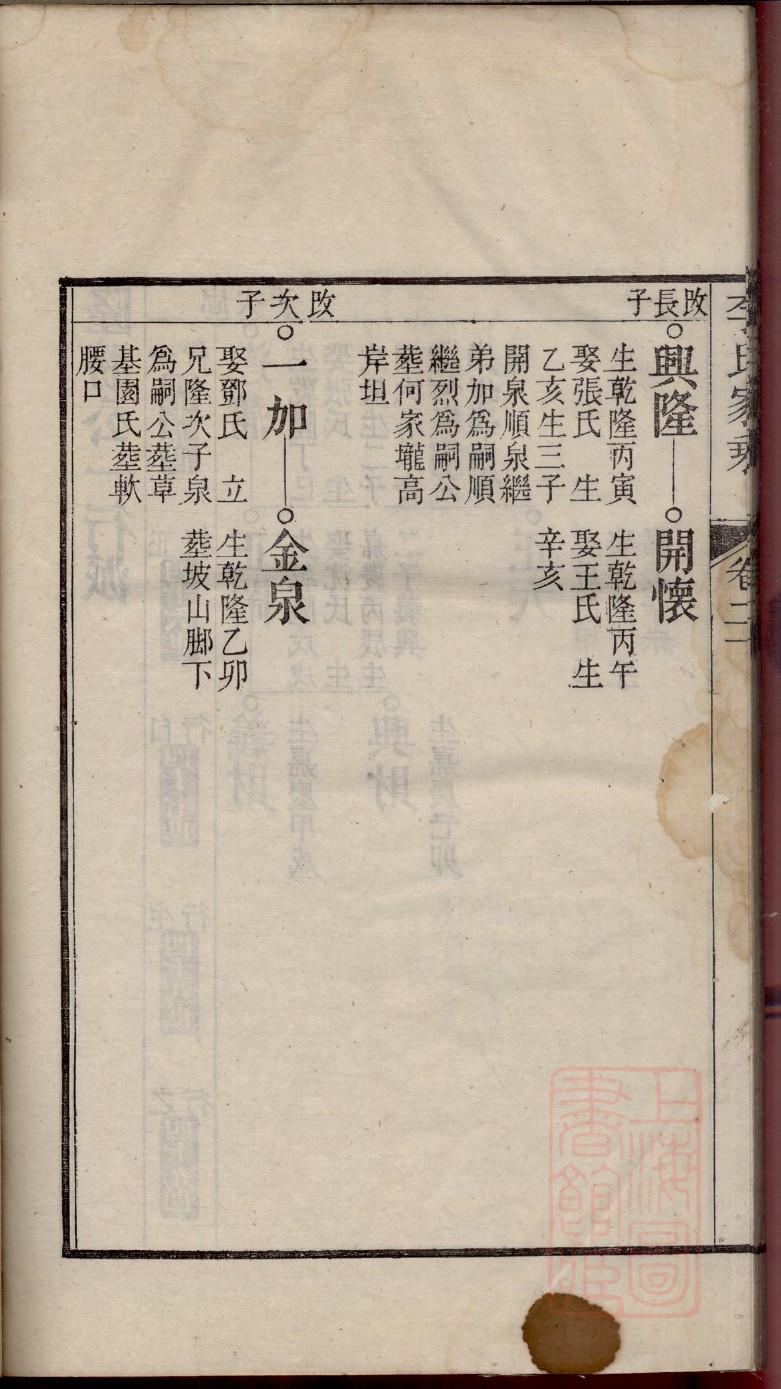 李氏家乘
卷二
攺長子
興隆
生乾隆丙寅
娶張氏　生
乙亥生三子
開泉順泉繼
弟加爲嗣順
繼烈爲嗣公
塟何家壠高
岸坦
開懐
生乾隆丙午
娶王氏　生
辛亥
攺次子
一加
娶鄧氏　立
兄隆次子泉
爲嗣公塟草
基園氏塟軟
腰口
金泉
生乾隆乙卯
塟坡山脚下
上海圖
書館藏